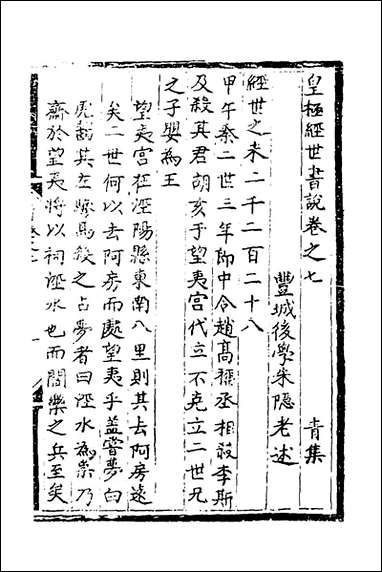 皇極經世書說卷之七
青集
豐城後學朱隠老述
經世之未二千二百二十八
甲午秦二世三年郎中令趙髙稱丞相殺李斯
及殺其君胡亥于望夷宫代立不克立二世兄
之子嬰為王
望夷宫在涇陽縣東南八里則其去阿房逺
矣二世何以去阿房而處望夷乎盖嘗夢白
虎齧其左驂馬殺之占夢者曰涇水為祟乃
齋於望夷將以祠涇水也而閻樂之兵至矣